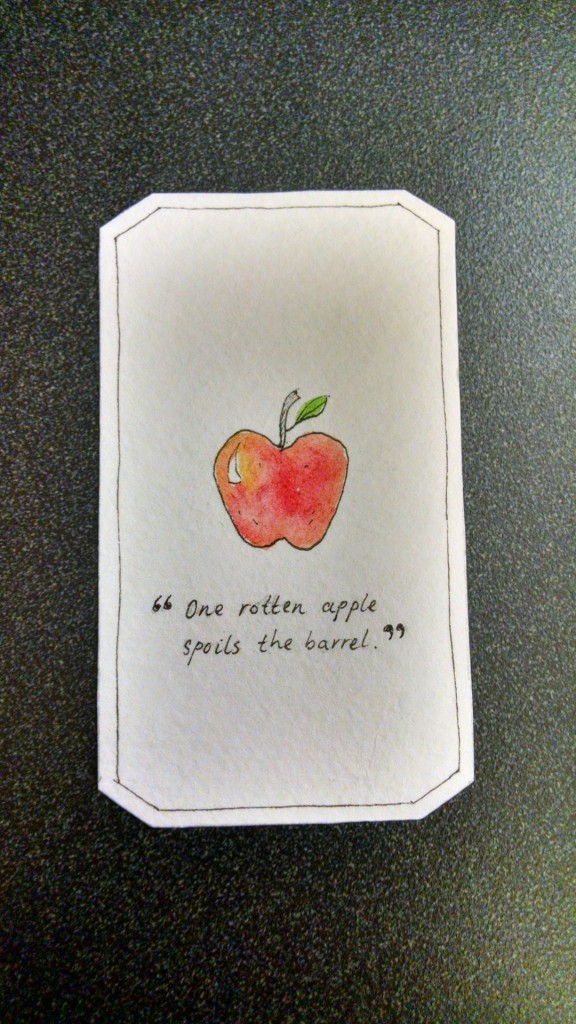 ❝ One rotten apple
spoils the barrel. ❞